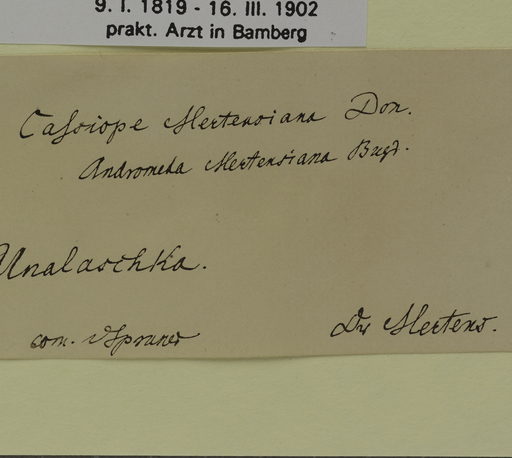 9. I. 1819 - 16. III. 1902
prakt. Arzt in Bamberg
Cassiope Mertensiana Don.
Andromeda Mertensiana Bugd.
Unalaschka.
com. v Spruner
Dr Mertens.